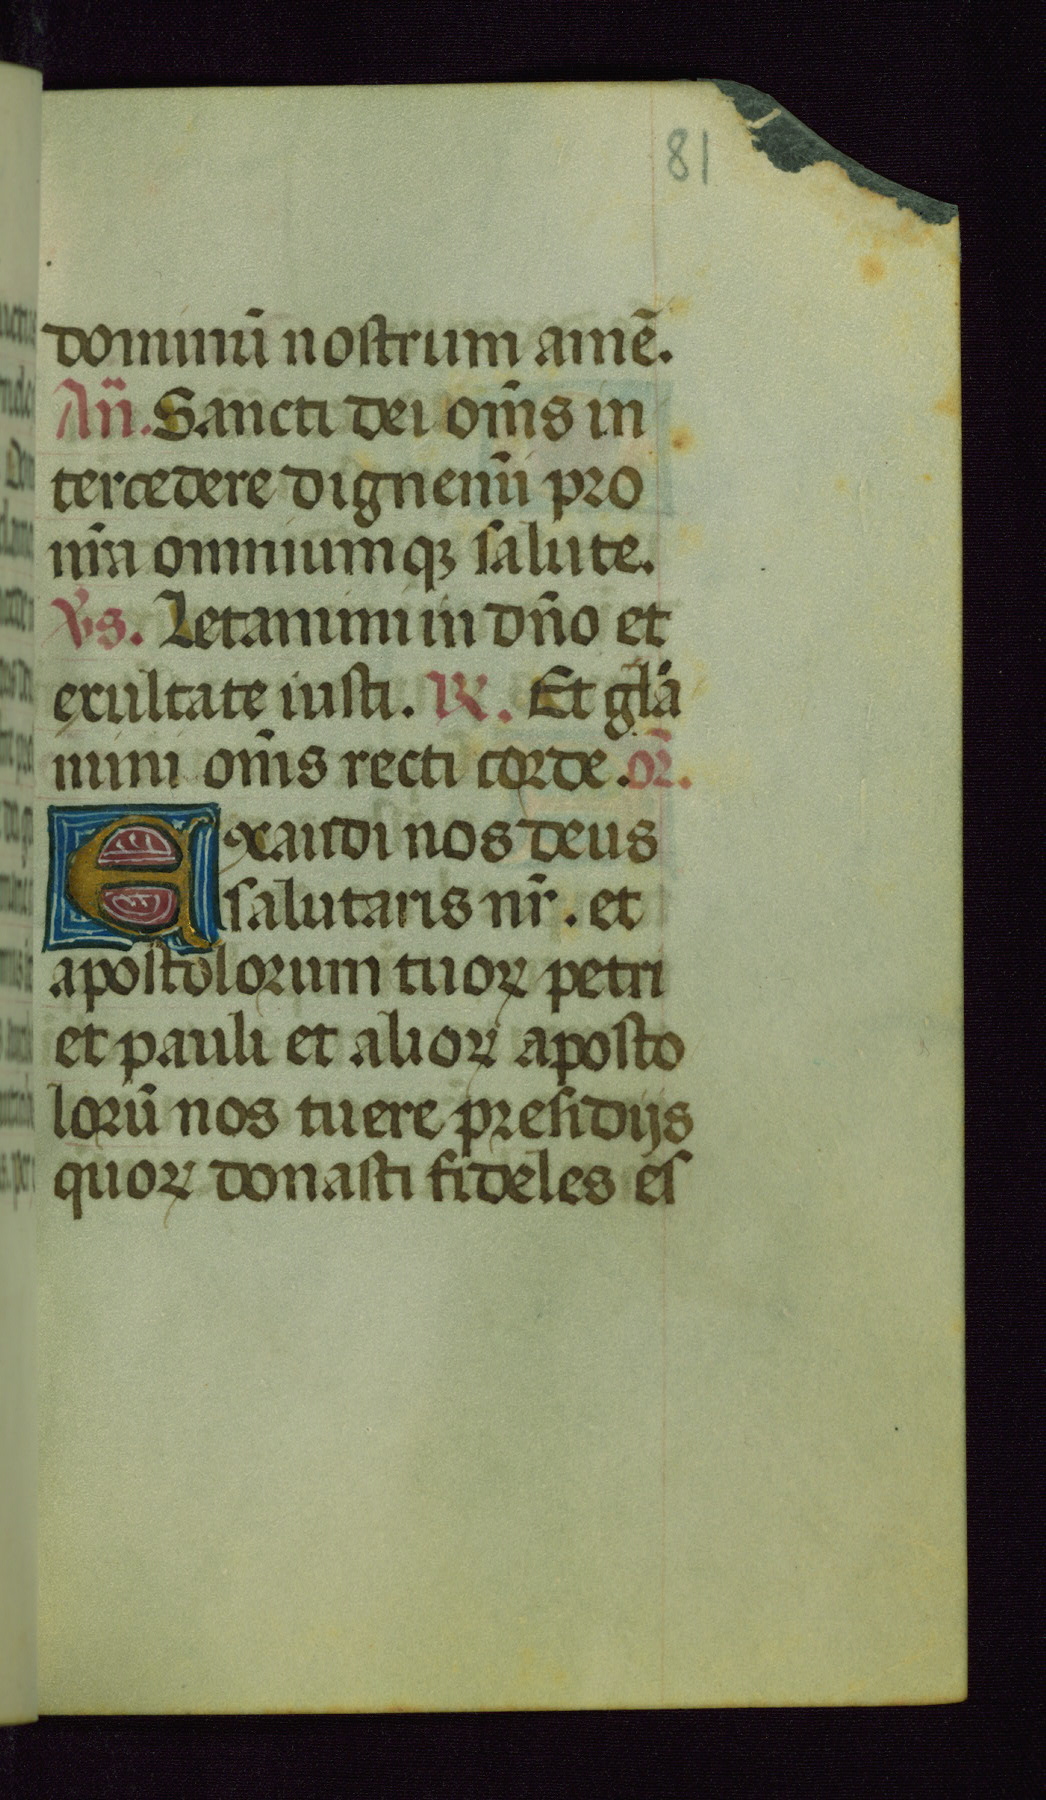 81
dominū nostrum amē.
Añ. Sancti dei om̄s in
tercedere dignem̄i pro
nr̄a omniumqꝫ salute.
Vs. Letamini in dn̄o et
exultate iusti. ℟. Et gl̄a
mini om̄s recti corde. or̄.
Exaudi nos deus
salutaris nr̄. et
apostolorum tuoꝝ petri
et pauli et alioꝝ aposto
lorū nos tuere presidijs
quoꝝ donasti fideles es